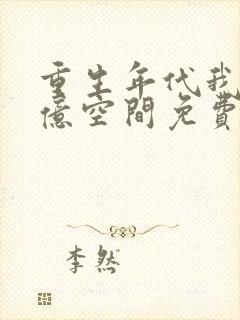 重生年代我
億空間免費
李然